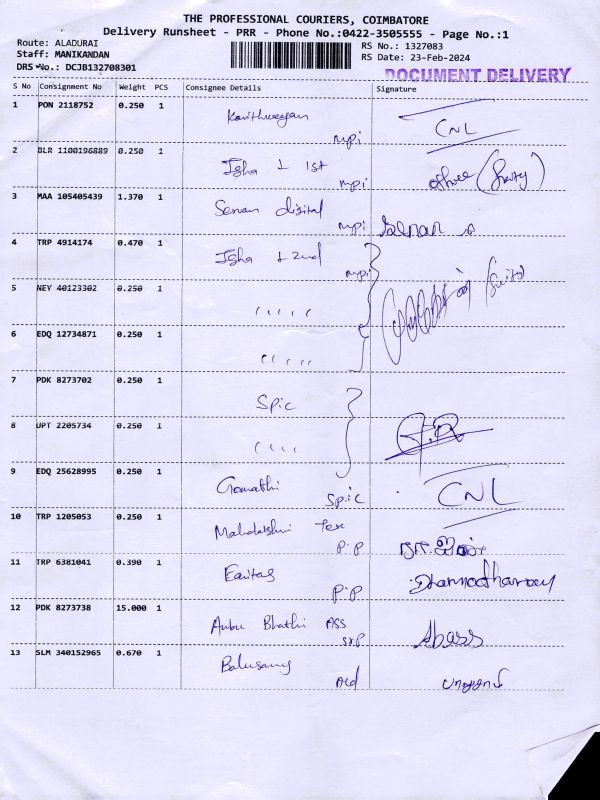 THE PROFESSIONAL COURIERS, COIMBATORE
Delivery Runsheet - PRR - Phone No.:0422-3505555 - Page No.:1
Route: ALADURAI
RS No.: 1327083
Staff: MANIKANDAN
RS Date: 23-Feb-2024
DRS No.: DCJB132708301
DOCUMENT DELIVERY
S No Consignment No Weight PCS Consignee Details Signature
1 PON 2118752 0.250 1
mpi CNL
2 BLR 1100196889 0.250 1 Isha 1st
mpi
3 MAA 105405439 1.370 1 Servan digital
mpi
4 TRP 4914174 0.470 1 Isha 2nd
mpi
5 NEY 40123302 0.250 1
" " "
6 EDQ 12734871 0.250 1
" " "
7 PDK 8273702 0.250 1
Spic
8 UPT 2205734 0.250 1
" " "
9 EDQ 25628995 0.250 1 Gomathi
Spic CNL
10 TRP 1205053 0.250 1 Mahalakshmi Tex
P.P
11 TRP 6381041 0.390 1
P.P
12 PDK 8273738 15.000 1 Anbu Bhathi ASS
Abass
13 SLM 340152965 0.670 1 Balusamy
Ald